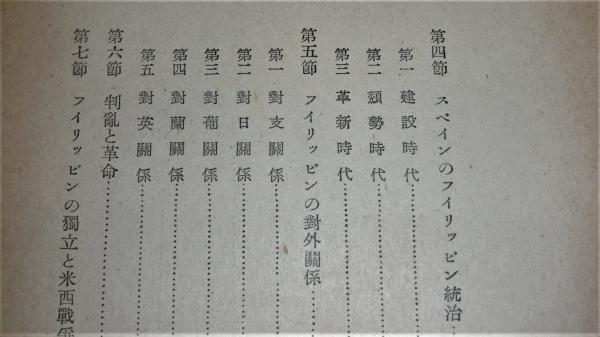 第四節 スペインのフイリッピン統治
第一 建設時代
第二 頽勢時代
第三 革新時代
第五節 フイリッピンの對外關係
第一 對支關係
第二 對日關係
第三 對葡關係
第四 對蘭關係
第五 對英關係
第六節 判亂と革命
第七節 フイリッピンの獨立と米西戰爭